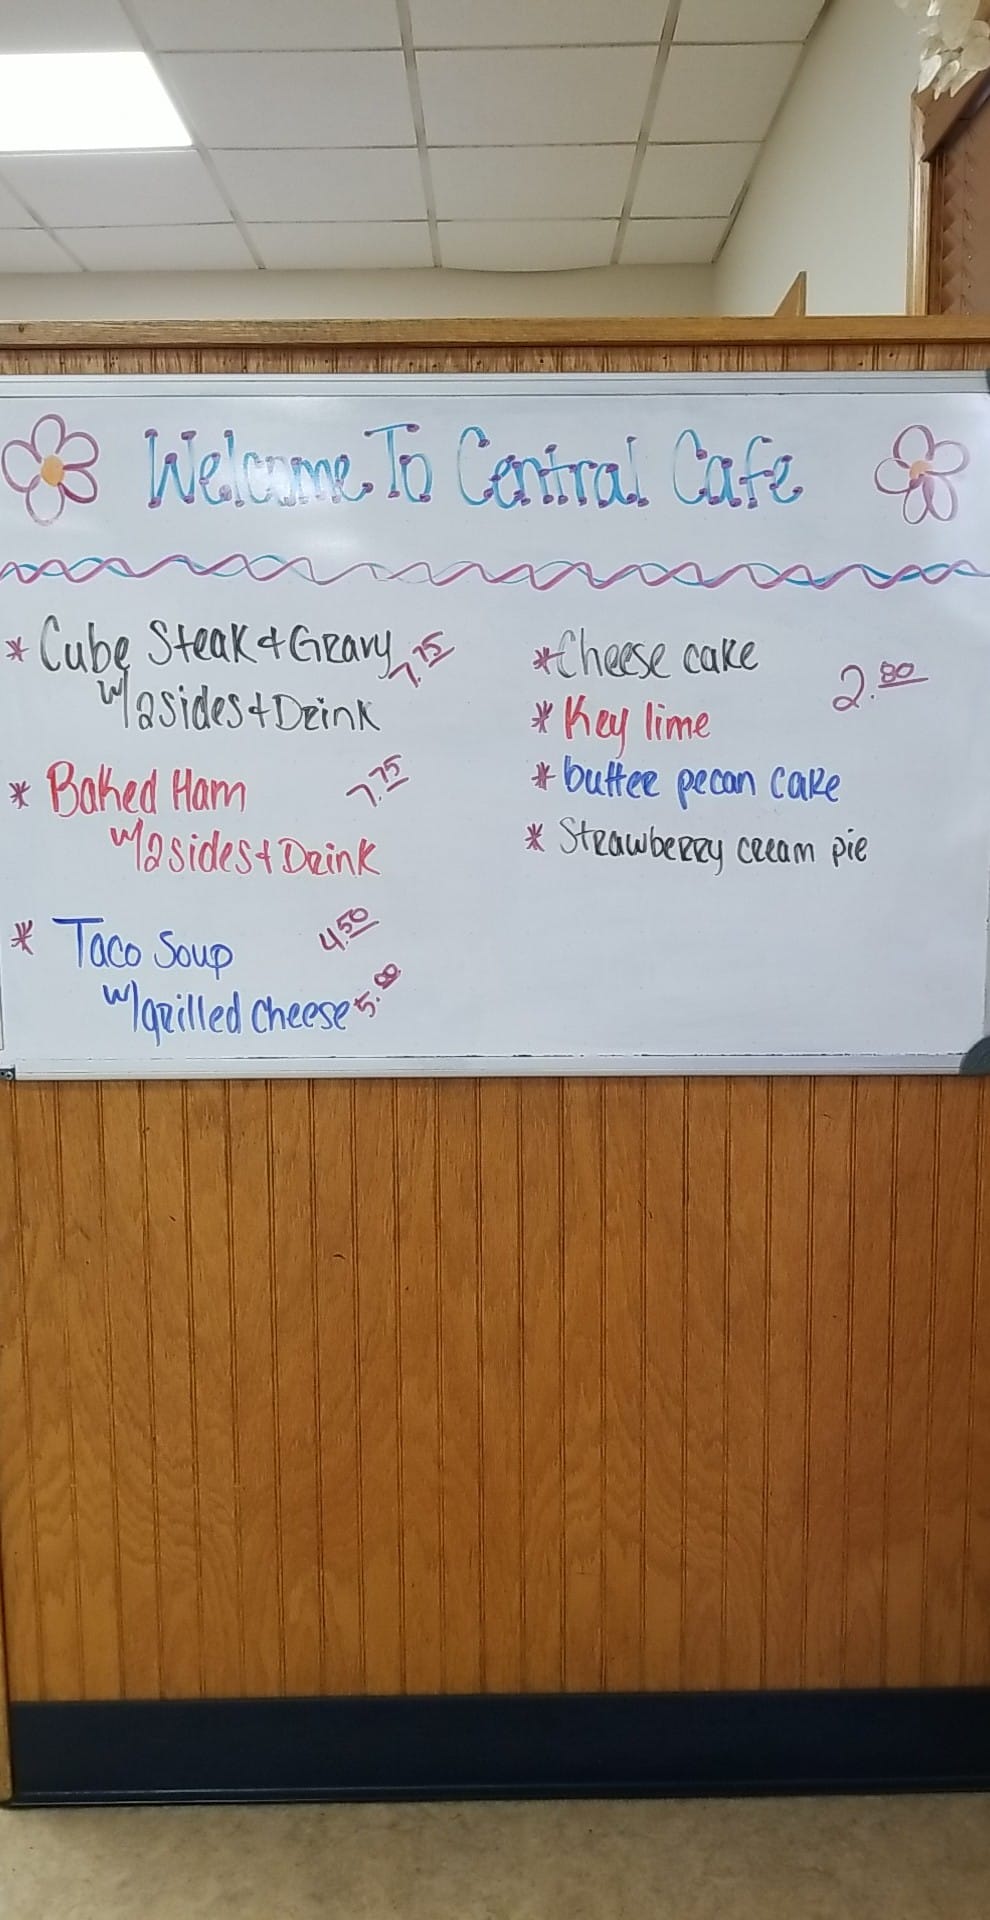 Welcome To Central Cafe
* Cube Steak & Gravy 7.75
w/2 sides & Drink
* Baked Ham 7.75
w/2 sides & Drink
* Taco Soup 4.50
w/grilled cheese 5.00
* Cheese cake
2.80
* Key lime
* butter pecan cake
* Strawberry cream pie